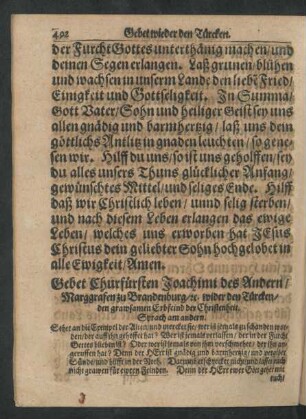 402 Gebet wieder den Türcken.
der Furcht Gottes unterthänig machen/und
deinen Segen erlangen. Laß grunen/blühen
und wachsen in unserm Lande den liebē Fried/
Einigkeit und Gottseligkeit. In Summa/
Gott Vater/Sohn und heiliger Geist sey uns
allen gnädig und barmhertzig/ laß uns dein
göttlichs Antlitz in gnaden leuchten/so gene-
sen wir. Hilff du uns/so ist uns geholffen/sey
du alles unsers Thuns glücklicher Anfang/
gewünschtes Mittel/und seliges Ende. Hilff
daß wir Christlich leben/ uund selig sterben/
und nach diesem Leben erlangen das ewige
Leben/ welches uns erworben hat JEsus
Christus dein geliebter Sohn hochgelobet in
alle Ewigkeit/Amen.
Gebet Churfürsten Joachimi des Andern/
Marggrafen zu Brandenburg/ꝛc. wider den Türcken-
den grausamen Erbfeind der Christenheit.
Syrach am andern.
Sehet an die Exempel der Alten und mercket sie/ wer ist jemals zu schanden wor-
den/der auff ihn gehoffet hat? Wer ist jemals verlassen/ der in der Furcht
Gottes blieben ist? Oder wer ist jemals von ihm verschmehet/ der ihn an-
geruffen hat? Denn der HErr ist gnädig und barmhertzig/ und vergibet
Sünde und hilfft in der Noth. Darumb erschrecket nicht/ und lasset euch
nicht grawen für ewren Feinden. Denn der HErr ewer Gott gehet mit
euch/